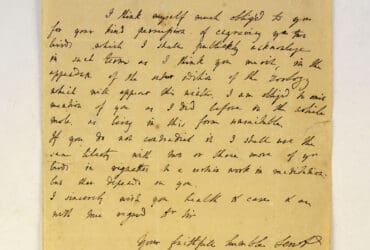 I think myself much obliged to you
for your kind permission of engraving yr two
birds which I shall publickly acknowledge
in such terms as I think you merit, in the
appendix of the edition of the Zoology
which will appear this winter. I am obliged to
of you as I did before in the
as living in this form
If you do not contradict it I shall use the
same liberty with two or three more of yr
birds in vignettes to a work in meditation;
but this depends on you.
I sincerely wish you health & ease & am
with true regard Dr Sir
Your faithfull humble Servt